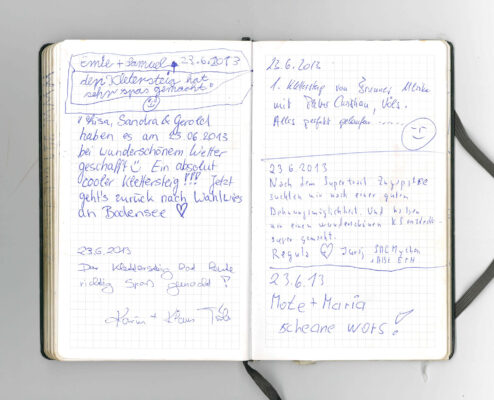 Emile + Samuel 23.6.2013
den Kletersteig hat
sehr spas gemacht.
Lisa, Sandra & Gerold
haben es am 23.06.2013
bei wunderschönem Wetter
geschafft Ein absolut
cooler Klettersteig!!! Jetzt
geht's zurück nach Wahlwies
an Bodensee ♡
23.6.2013
Der Klettersteig hat heute
richtig Spass gemacht!
Karin + Klaus
22.6.2013
1. Klettersteig von
mit
Alles perfekt gelaufen.....
23.6.2013
Nach dem Supertrail Zugspitze
suchten wir noch einer guten
Dehnungsmöglichkeit. Und haben
an einem wunderschönen
super gemacht.
Regula
23.6.13
Mote + Maria
scheane wors!